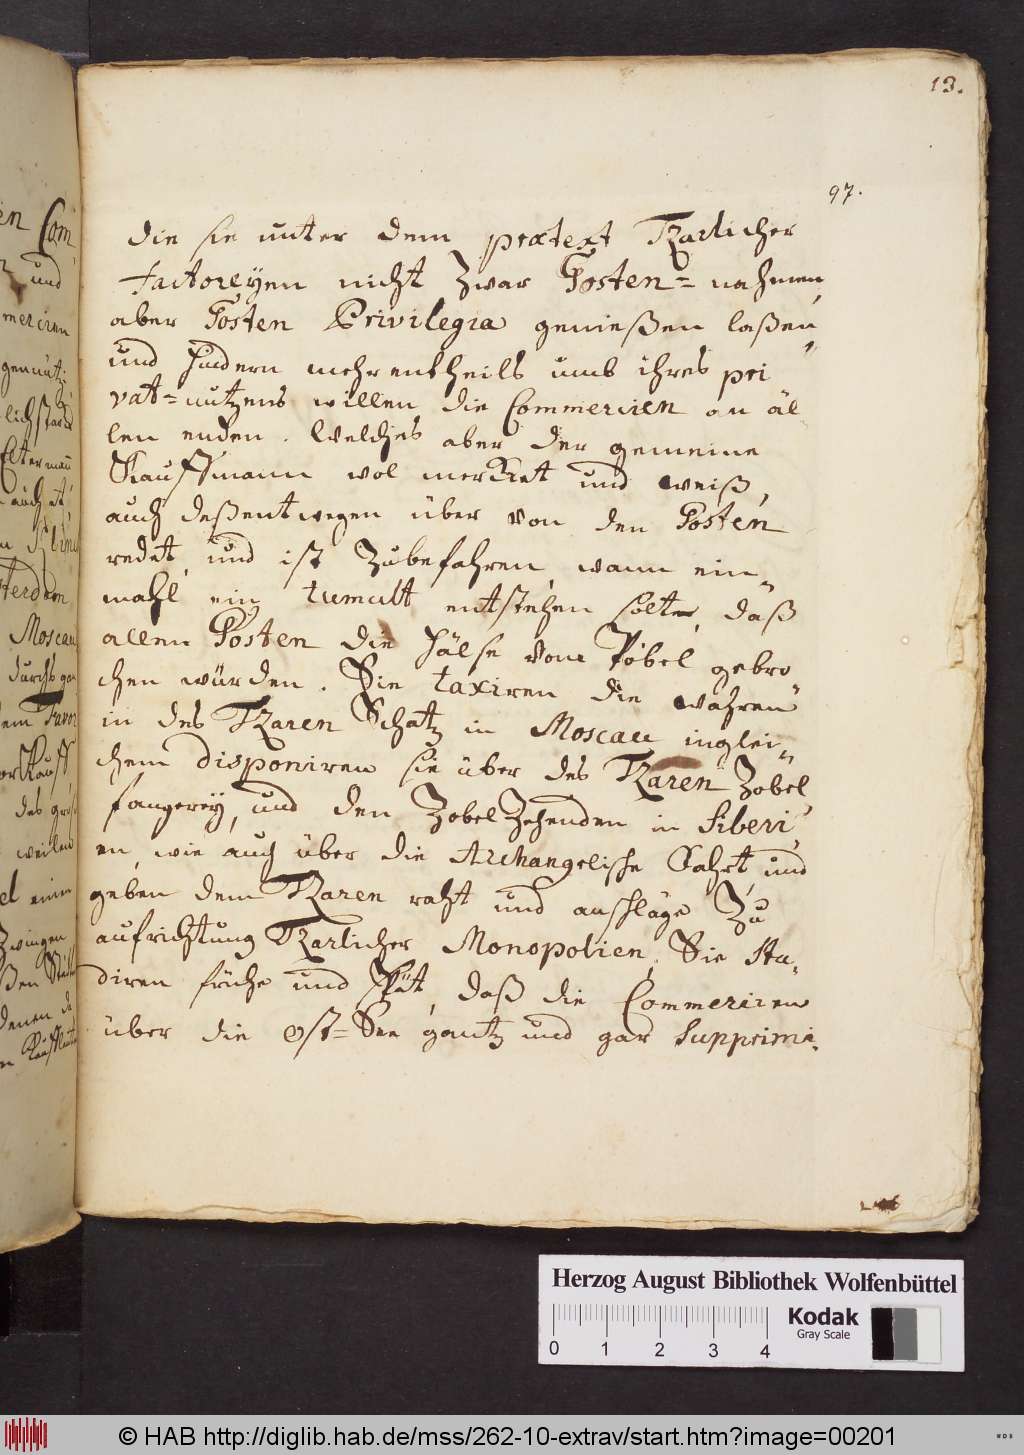 13.
97.
die sie unter dem prætext Tzarlicher
Factoreyen nicht zwar Gosten= nahmen,
aber Gosten Privilegia genießen laßen„
und hindern mehrentheils umb ihres pri
vat=nutzens willen die Commercien an äl
len enden. Welches aber der gemeine
Kauffmann wol mercket und weiß,
auch deßentwegen über von den Gosten
redet, und ist zubefahren, wann ein„
mahl ein tumult entstehen solte, däß
allen Gosten die Hälse vom Pöbel gebro
chen würden. Sie taxiren die wahren
in des Tzaren Schatz in Moscau inglei„
chem disponiren sie über des Tzaren Zobel
fangerey, und den Zobel Zehenden in Siberi„
en, wie auch über die Archangelische Fahrt, und
geben dem Tzaren raht und anschläge zu
aufrichtung Tzarlicher Monopolien. Sie stu„
diren frühe und Spät, daß die Commercien
über die Ost=See gantz und gar supprimi„
en Com
und
mercien
gennütz
Elterman
auch
Moscau
durchs
dem Favor
Kauff
des
weilen
einen
zwingen
denen
Herzog August Bibliothek Wolfenbüttel
Kodak
Gray Scale
0 1 2 3 4
© HAB http://diglib.hab.de/mss/262-10-extrav/start.htm?image=00201
WDB